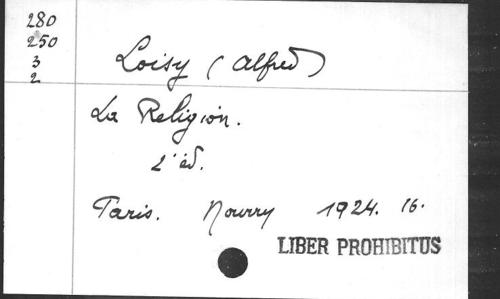 280
250
3
2
Loisy (Alfred)
La Religion.
2e éd.
Paris. Nourry 1924. 16.
LIBER PROHIBITUS